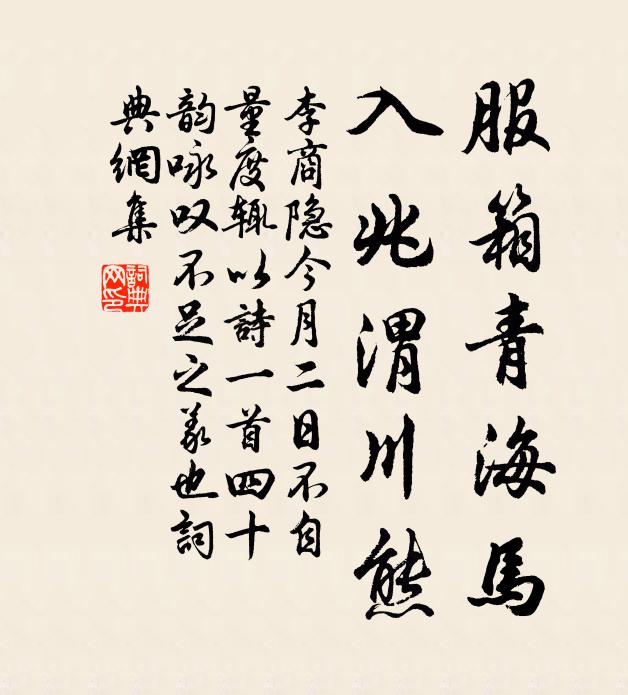 服箱青海馬
入兆渭川熊
李商隐今月二日不自
量度辄以詩一首四十
韵咏叹不足之義也詞
典網集
詞典
网印